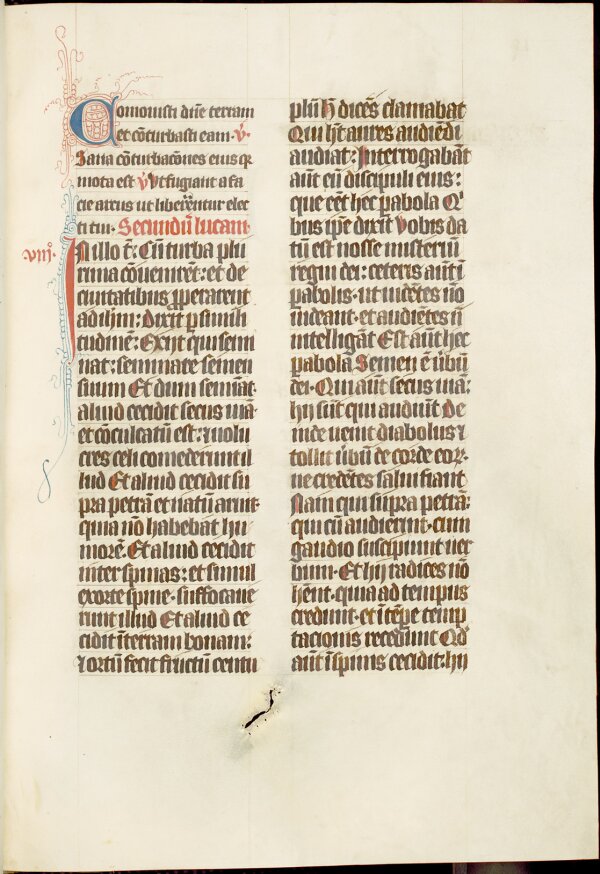 Comouisti dn̄e terram
et cōturbasti eam. v̄.
Sana cōtturbacōnes eius qr
mota est v̄ Vt fugiant a fa
cie arcus ut liberent̄ur elec
ti tui. Secundū lucam
viij.
In illo t̄: Cū turba plu
rima cōuenirēt: et de
ciuitatibus ꝓperarent
ad ihm̄: dixit ꝑ simili
tudinē: Exijt qui semi
nat: seminare semen
suum Et dum seminat.
aliud cecidit secus uiā.
et cōculcatū est: ⁊ uolu
cres celi comederunt il
lud Et aliud cecidit su
pra petrā et natū aruit.
quia nō habebat hu
morē. Et aliud cecidit
inter spinas: et simul
exorte spine. suffocaue
runt illud Et aliud ce
cidit ī terram bonam:
⁊ ortū fecit fructū centu
plū H̄ dicēs clamabat
Qui hꝫ aures audiēdi
audiat: Interrogabāt
aūt eū discipuli eius:
que eēt hec ꝑabola Qi
bus ipe dixit Vobis da
tū est nosse misteriū
regni dei: ceteris autī
ꝑabolis. ut uidētes nō
uideant. et audiētes nō
intelligāt Est aūt hec
ꝑabola Semen ē ūbū
dei. Qui aūt secus uiā:
hij sūt qui audiūt De
inde uenit diabolus ⁊
tollit ūbū de corde eoꝝ.
ne credētes salui fiant
Nam qui supra petrā:
qui cū audierint. cum
gaudio suscipiunt ver
bum. Et hij radices nō
hēnt. quia ad tempus
credunt. et ī tēpe temp
tacionis recedūnt Qd
aūt ī spinis cecidit: hij